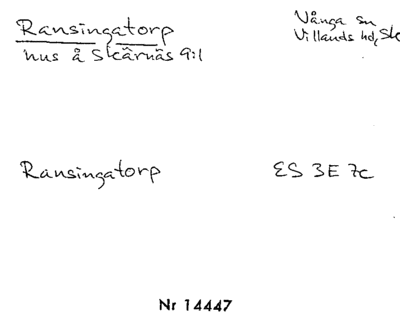 Ransingatorp
hus å Skärnäs 9:1
Vånga sn
Villands hd, Sk
Ransingatorp
ES 3E 7c
Nr 14447